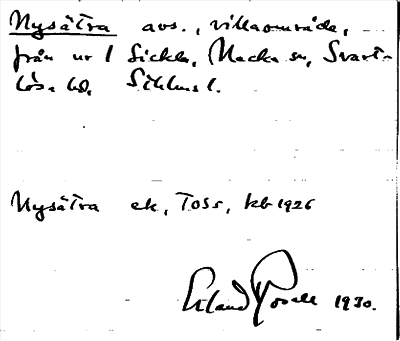 Nysätra avs., villaområde,
från nr 1 Sickla, Nacka sn, Svart-
lösa hd, Sthlms l.
Nysätra ek, TOSS, kb 1926
Erland Rosell 1930.